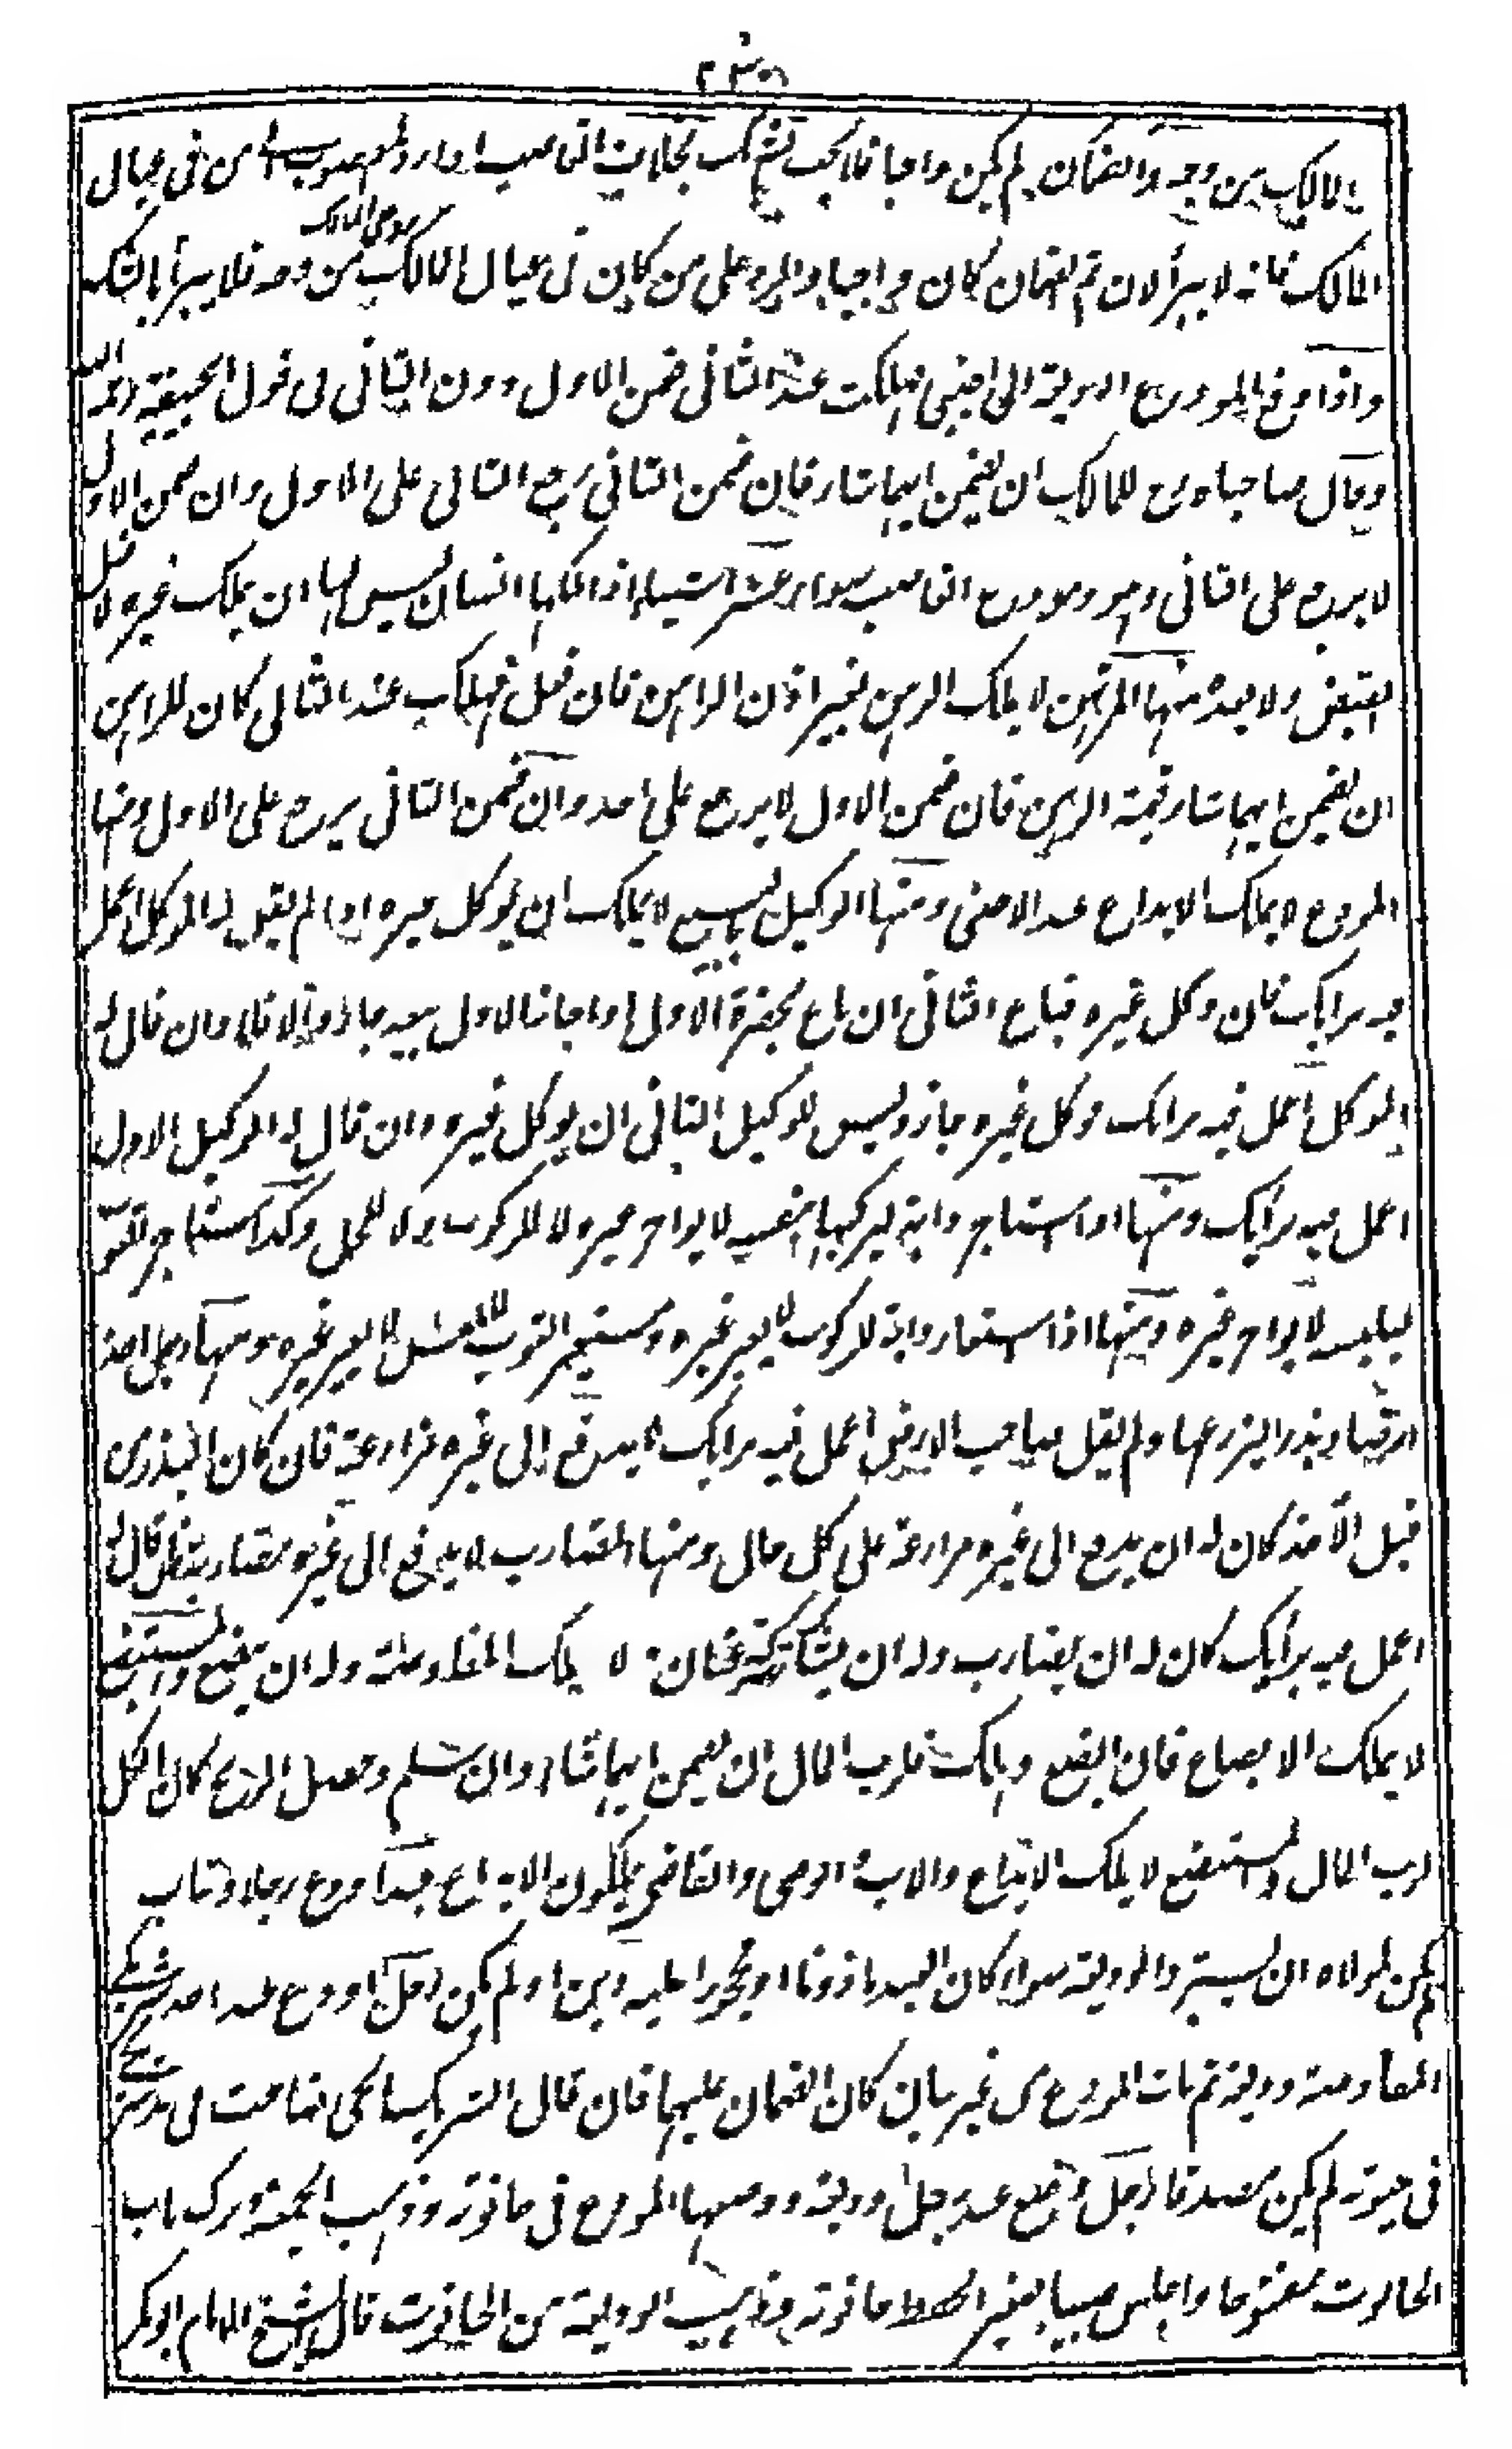 المالك من وجه والضمان لم يكن واجبا فلا يجب بالشك بخلاف الغاصب اذا رد المغصوب الى من في عيال
المالك فانه لا يبرأ لان ثم الضمان كان واجبا والرد على من كان في عيال المالك من وجه فلا يبرأ بالشك
واذا دفع المودع الوديعة الى اجنبي فهلكت عند الثاني ضمن الاول دون الثاني في قول ابي حنيفة رحمه الله
وقال صاحباه رح للمالك ان يضمن ايهما شاء فان ضمن الثاني رجع الثاني على الاول وان ضمن الاول
لا يرجع على الثاني وهو ومودع الغاصب سواء عشر اشياء اذا ملكها انسان ليس لها ان يملك غيره لا قبل
القبض ولا بعده منها المرتهن لا يملك الرهن بغير اذن الراهن فان فعل فهلك عند الثاني كان للراهن
ان يضمن ايهما شاء قيمة الرهن فان ضمن الاول لا يرجع على احد وان ضمن الثاني يرجع على الاول ومنها
المودع لا يملك الايداع عند الاجنبي ومنها الوكيل بالبيع لا يملك ان يوكل غيره اذا لم يقل له الموكل اعمل
فيه برايك فان وكل غيره فباع الثاني ان باع بحضرة الاول او اجاز الاول بيعه جاز والا فلا وان قال له
الموكل اعمل فيه برايك فوكل غيره جاز وليس للوكيل الثاني ان يوكل غيره وان قال له الوكيل الاول
اعمل فيه برايك ومنها اذا استاجر دابة ليركبها بنفسه لا يواجر غيره لا للركوب ولا للحمل وكذا استاجر الثوب
ليلبس لا يواجر غيره ومنها اذا استعار دابة للركوب لا يعير غيره ومستعير الثوب للبس لا يعير غيره ومنها رجل اخذ
ارضا وبذرا ليزرعها ولم يقل صاحب الارض اعمل فيه برايك لا يدفع الى غيره مزارعة فان كان البذر من
قبل الآخذ كان له ان يدفع الى غيره مزارعة على كل حال ومنها المضارب لا يدفع الى غيره مضاربة فان قال له
اعمل فيه برايك كان له ان يضارب وله ان يشارك شركة عنان لا يملك المفاوضة وله ان يبضع والمستبضع
لا يملك الابضاع فان ابضع وهلك فلرب المال ان يضمن ايهما شاء وان سلم وحصل الربح كان الكل
لرب المال والمستبضع لا يملك الايداع والاب والوصي والقاضي يملكون الايداع عبد اودع رجلا وغاب
لم يكن لمولاه ان يسترد الوديعة سواء كان العبد ماذونا او محجورا عليه دين او لم يكن رجل اودع عند احد شريكي
المفاوضة وديعة ثم مات المودع من غير بيان كان الضمان عليهما فان قال الشريك الحي ضاعت في يد شريكي
في حيوته لم يكن مصدقا رجل وضع عند رجل وديعة ووضعها المودع في حانوته وذهب الى الجمعة وترك باب
الحانوت مفتوحا واجلس صبيا صغيرا لحفظ حانوته وذهبت الوديعة من الحانوت قال الشيخ الامام ابو بكر